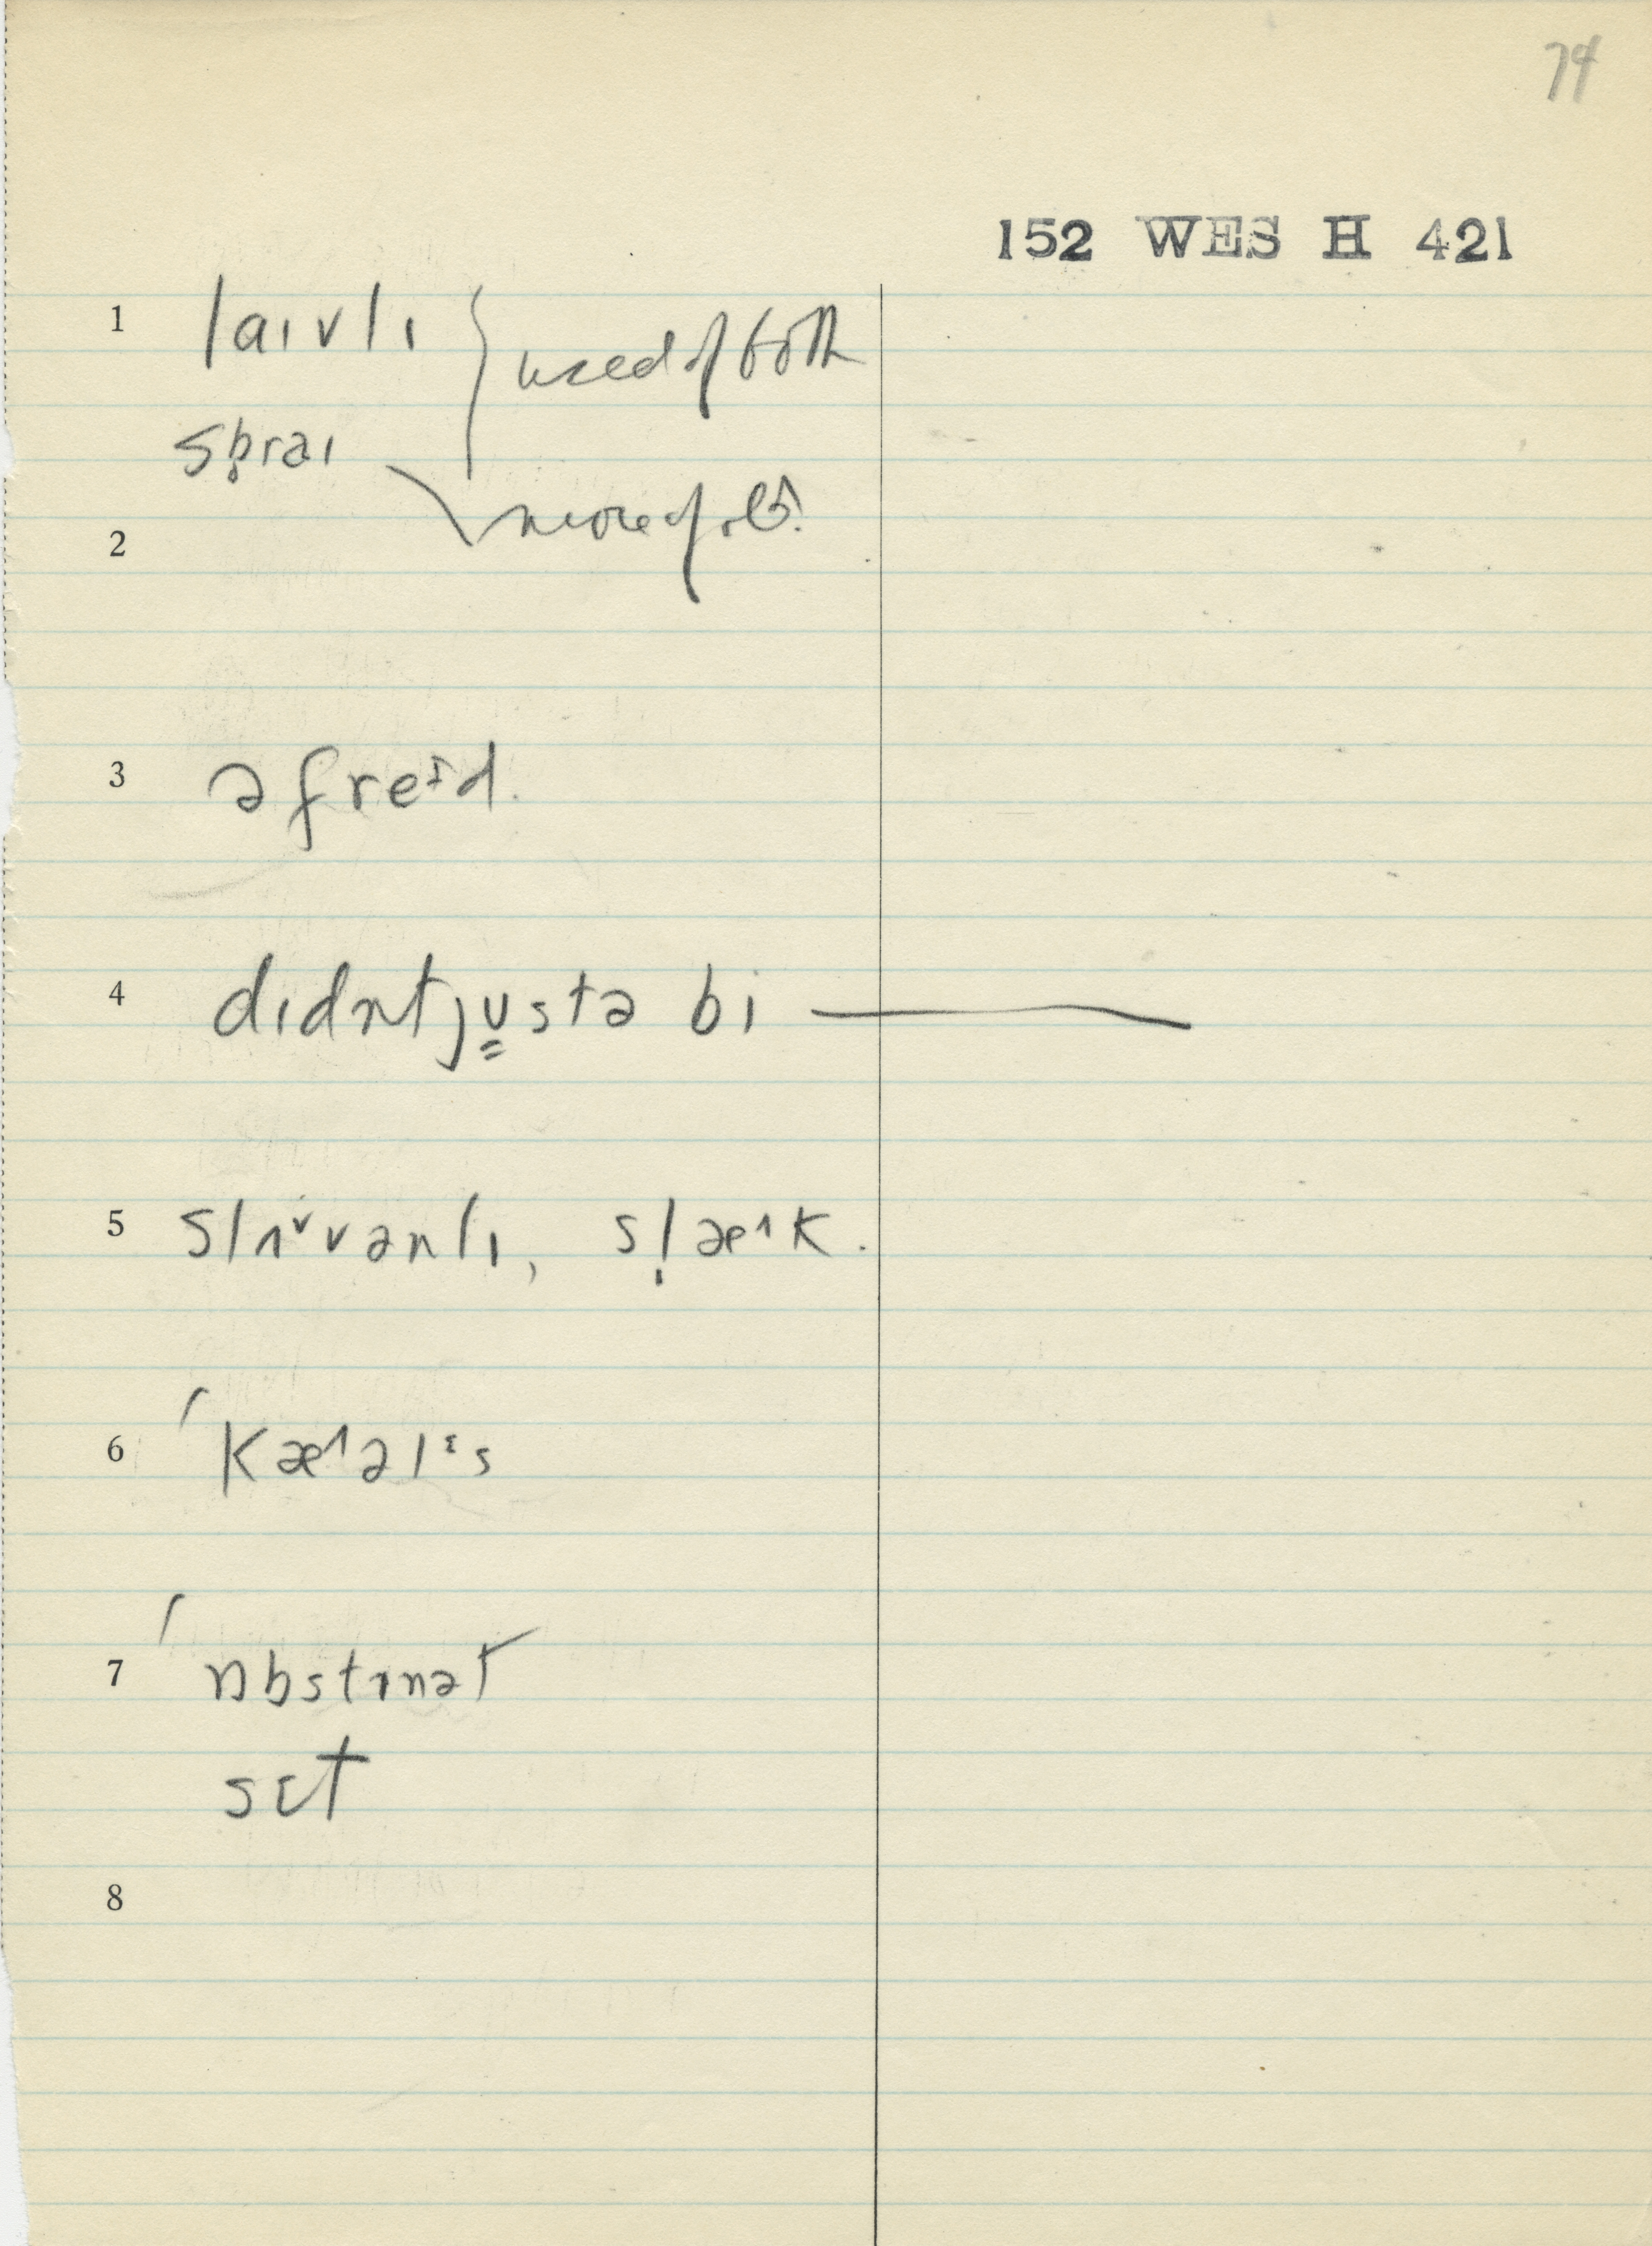 74
152 WES H 421
1 laɪvlɪ } used of both
sb̥raɪ
2 more of old
3 əfreᶦd.
4 dɪdntju̳stə bi —
5 slʌᵛvənlɪ, sl̩æ^k.
6 ˈkæ^əlᵋs
7 ˈɒbstɪnət
sɛt
8